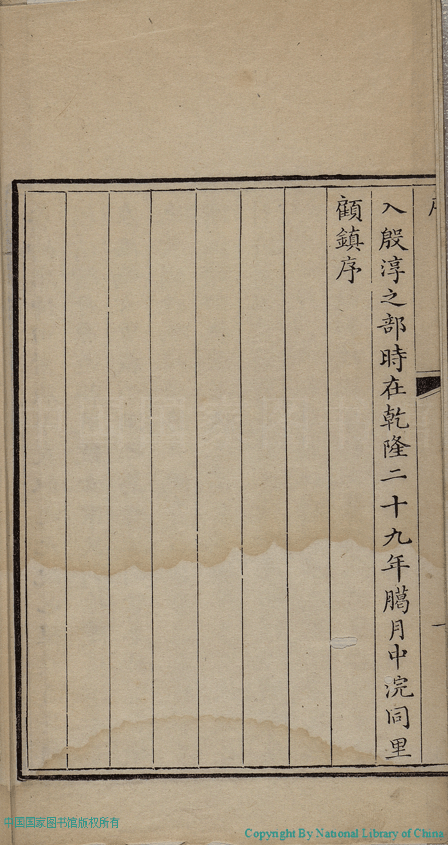 入殷淳之部時在乾隆二十九年臈月中浣同里
顧鎮序
中国国家图书馆版权所有
Copyright By National Library of China